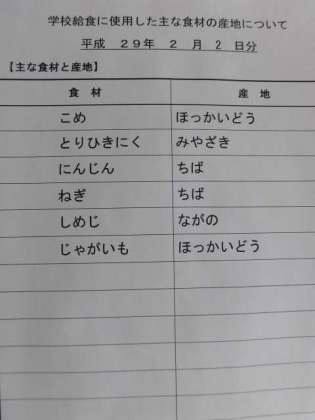 学校給食に使用した主な食材の産地について
平成 29年 2 月 2 日分
【主な食材と産地】
食 材 産 地
こめ ほっかいどう
とりひきにく みやざき
にんじん ちば
ねぎ ちば
しめじ ながの
じゃがいも ほっかいどう